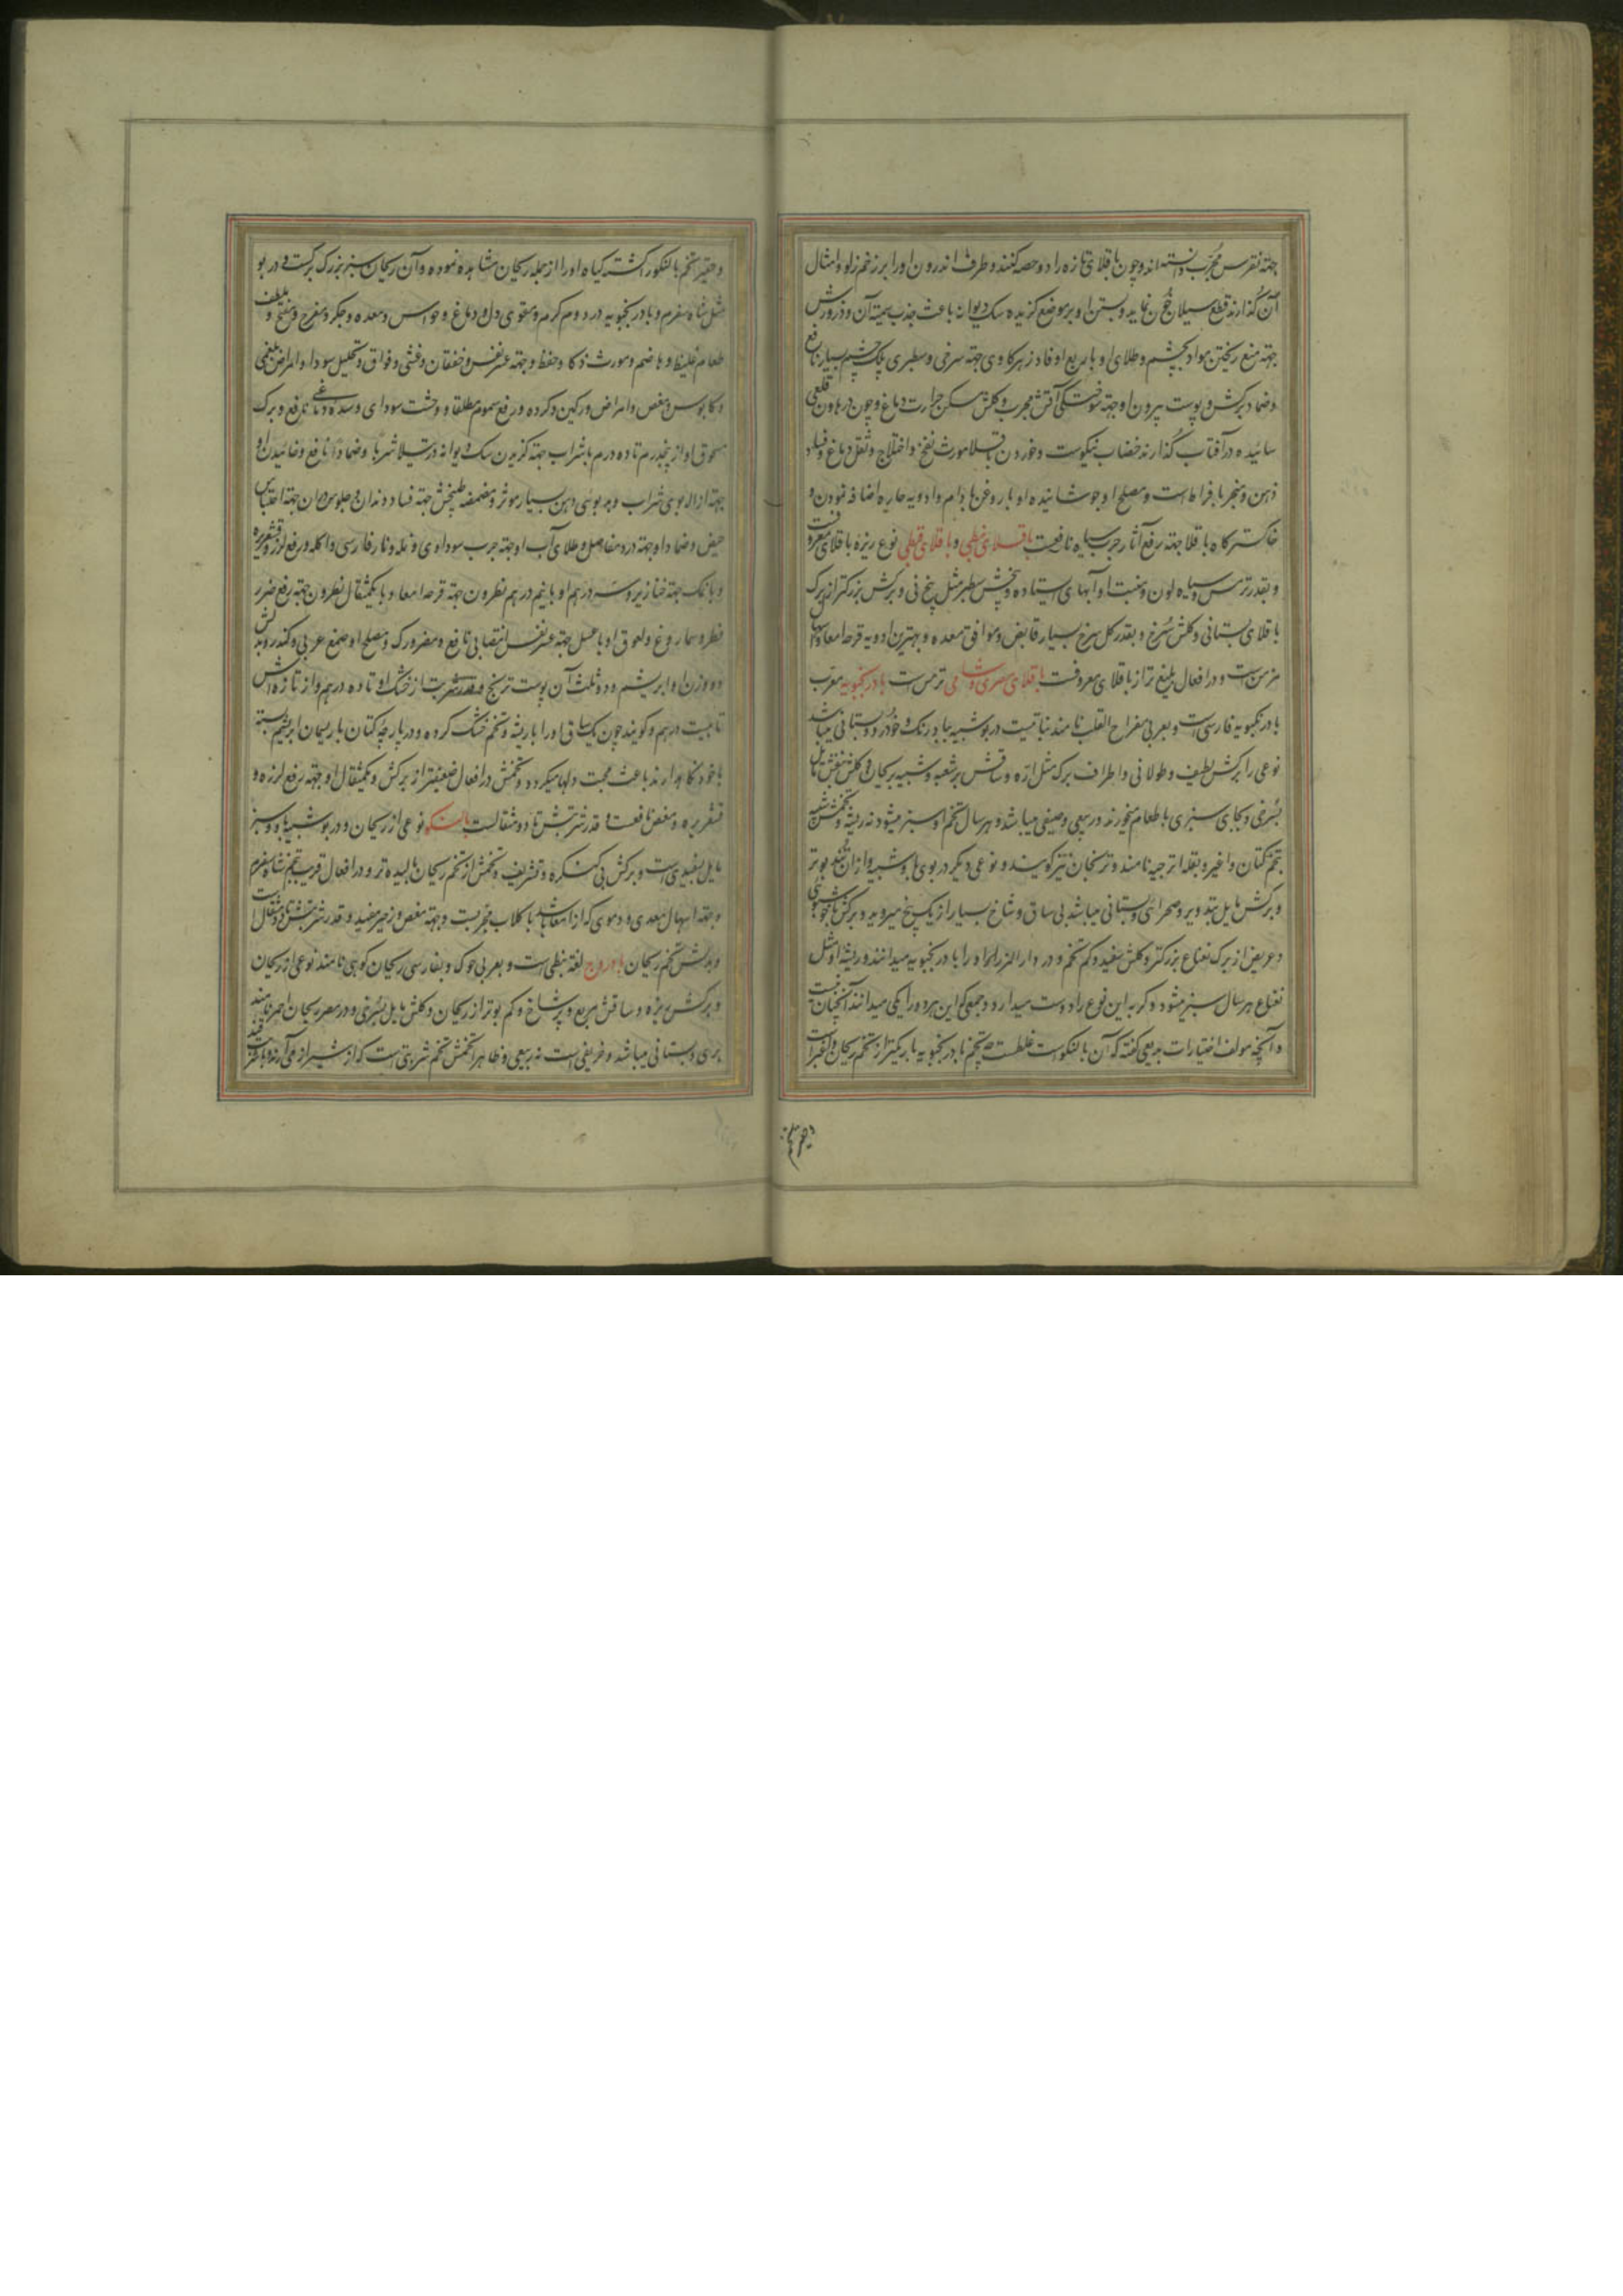 جهته نقرس مجرب دانسته‌اند و چون باقلای تازه را دو حصه کنند و طرف اندرون او را بر زخم زلو و امثال
آن گذارند قطع سیلان خون نماید و بستن او بر موضع گزیده سک دیوانه باعث جذب سمیه آن و ذرورش
جهته منع ریختن مواد بچشم و طلای او با ربع او فادزهر کاوی جهته سرخی و سطبری پلک چشم بسیار نافع
و ضماد برکش و پوست بیرون او جهته سوختگی آتش مجرب و کلش مسکن حرارت دماغ و چون در هاون قلعی
سائیده در آفتاب گذارند خضاب نیکوست و خوردن باقلا مورث نفخ و اختلاج و ثقل دماغ و فساد
ذهن و مبخر بافراط است و مصلح او جوشانیده او با روغن بادام و ادویه حاره اضافه نمودن و
خاکستر کاه باقلا جهته رفع آثار جرب سیاه نافعست باقلای نبطی و باقلای قبطی نوع ریزه باقلای معروفست
و بقدر ترمس و سیاه لون و منبت او آبهای ایستاده و بیخش سطبر مثل بیخ نی و برکش بزرکتر از برک
باقلای بستانی و کلش سُرخ و بقدر کل سرخ بسیار قابض و موافق معده و بهترین ادویه قرحه امعا و اسهال
مزمن است و در افعال بلیغ‌تر از باقلای معروفست باقلای مصری و شامی ترمس است بادرنجبویه معرب
بادرنکبویه فارسی است و بعربی مفراح القلب نامند نباتیست در بو شبیه ببادرنک و خودرو و بستانی میباشد
نوعی را برکش لطیف و طولانی و اطراف برک مثل ارّه و ساقش پر شعبه و شبیه بریحان و کلش بنفش مایل
بسُرخی و بجای سبزی با طعام میخورند و ربیعی و صیفی میباشد و هر سال تخم او سبز میشود نه ریشه و تخمش شبیه
بتخم کتان و اغبر و بقله اترجیه نامند و ترنجان نیز کویند و نوعی دیکر در بوی باو شبیه و از آن تند بوتر
و برکش مایل بتدویر و صحرائی و بستانی میباشد بی ساق و شاخ بسیار از یک بیخ میروید و برکش با خشونتی
و عریض از برک نعناع بزرکتر و کلش سفید و کم تخم و در دارالمرز او را بادرنجبویه میدانند و ریشه او مثل
نعناع هر سال سبز میشود و کربه این نوع را دوست میدارد و جمعی که این هر دو را یکی میدانند آنچنان نیست
و آنچه مولف اختیارات بدیعی کفته که آن بالنکوست غلطست چه تخم بادرنجبویه باریکتر از تخم ریحان و اغبر است
و حقیر تخم بالنکو را کشته کیاه او را از جمله ریحان مشاهده نموده و آن ریحان سبز بزرک برکست و در بو
مثل شاه سفرم و بادرنجبویه در دوم کرم و مقوی دل و دماغ و حواس و معده و جکر و مفرح و منضج و ملطف
طعام غلیظ و هاضم و مورث ذکا و حفظ و جهته عسر نفس و خفقان و غشی و فواق و تحلیل سودا و امراض بلغمی
و کابوس و مغص و امراض ورکین و کرده و رفع سموم مطلقا و وحشت سودای و سده دماغی نافع و برک
مسحوق او از پنجدرم تا ده درم با شراب جهته کزیدن سک دیوانه و رتیلا شربا و ضمادا نافع و خائیدن او
جهته ازاله بوی شراب و بدبوئی دهن بسیار موثر و مضمضه طبیخش جهته فساد دندان و جلوس در آن جهته احتباس
حیض و ضماد او جهته درد مفاصل و طلای آب او جهته جرب سوداوی و نمله و نار فارسی و اکله و رفع لرز و قشعریره
و با نمک جهته خنازیر و سه درهم او با نیم درهم نطرون جهته قرحه امعا و با یکمثقال نطرون جهته رفع ضرر
فطر و سماروغ و لعوق او با عسل جهته عسر نفس انتصابی نافع و مضر ورک و مصلح او صمغ عربی و کندر و بدلش
دو وزن او ابریشم و دو ثلث آن پوست ترنج و قدر شربت از خشک او تا ده درهم و از تازه‌اش
تا بیست درهم و کویند چون یک ساق او را با ریشه و تخم خشک کرده و در پارچه کتان با ریسمان ابریشم بسته
با خود نکاهدارند باعث محبت دلها میکردد و تخمش در افعال ضعیفتر از برکش و یکمثقال او جهته رفع لرزه و
قشعریره و مغص نافعست و قدر شربتش تا دو مثقالست بالنکو نوعی از ریحان و در بو شبیه باو و سبز
مایل بسفیدی است و برکش بی کنکره و تشریف و تخمش از تخم ریحان بالیده‌تر و در افعال قریب بتخم شاه سفرم
و جهته اسهال معدی و دموی که از امعا باشد با کلاب مجربست و جهته مغص و زحیر مفید و قدر شربتش تا دو مثقال است
و بدلش تخم ریحان بادروج لغة نبطی است و بعربی حوک و بفارسی ریحان کوهی نامند نوعی از ریحان
و برکش ریزه و ساقش مربع و پر شاخ و کم بوتر از ریحان و کلش مایل بسُرخی و در مصر ریحان احمر نامند
بری و بستانی میباشد و خریفی است نه ربیعی و ظاهرا تخمش تخم شربتی است که از شیراز می‌آرند
و حقیر